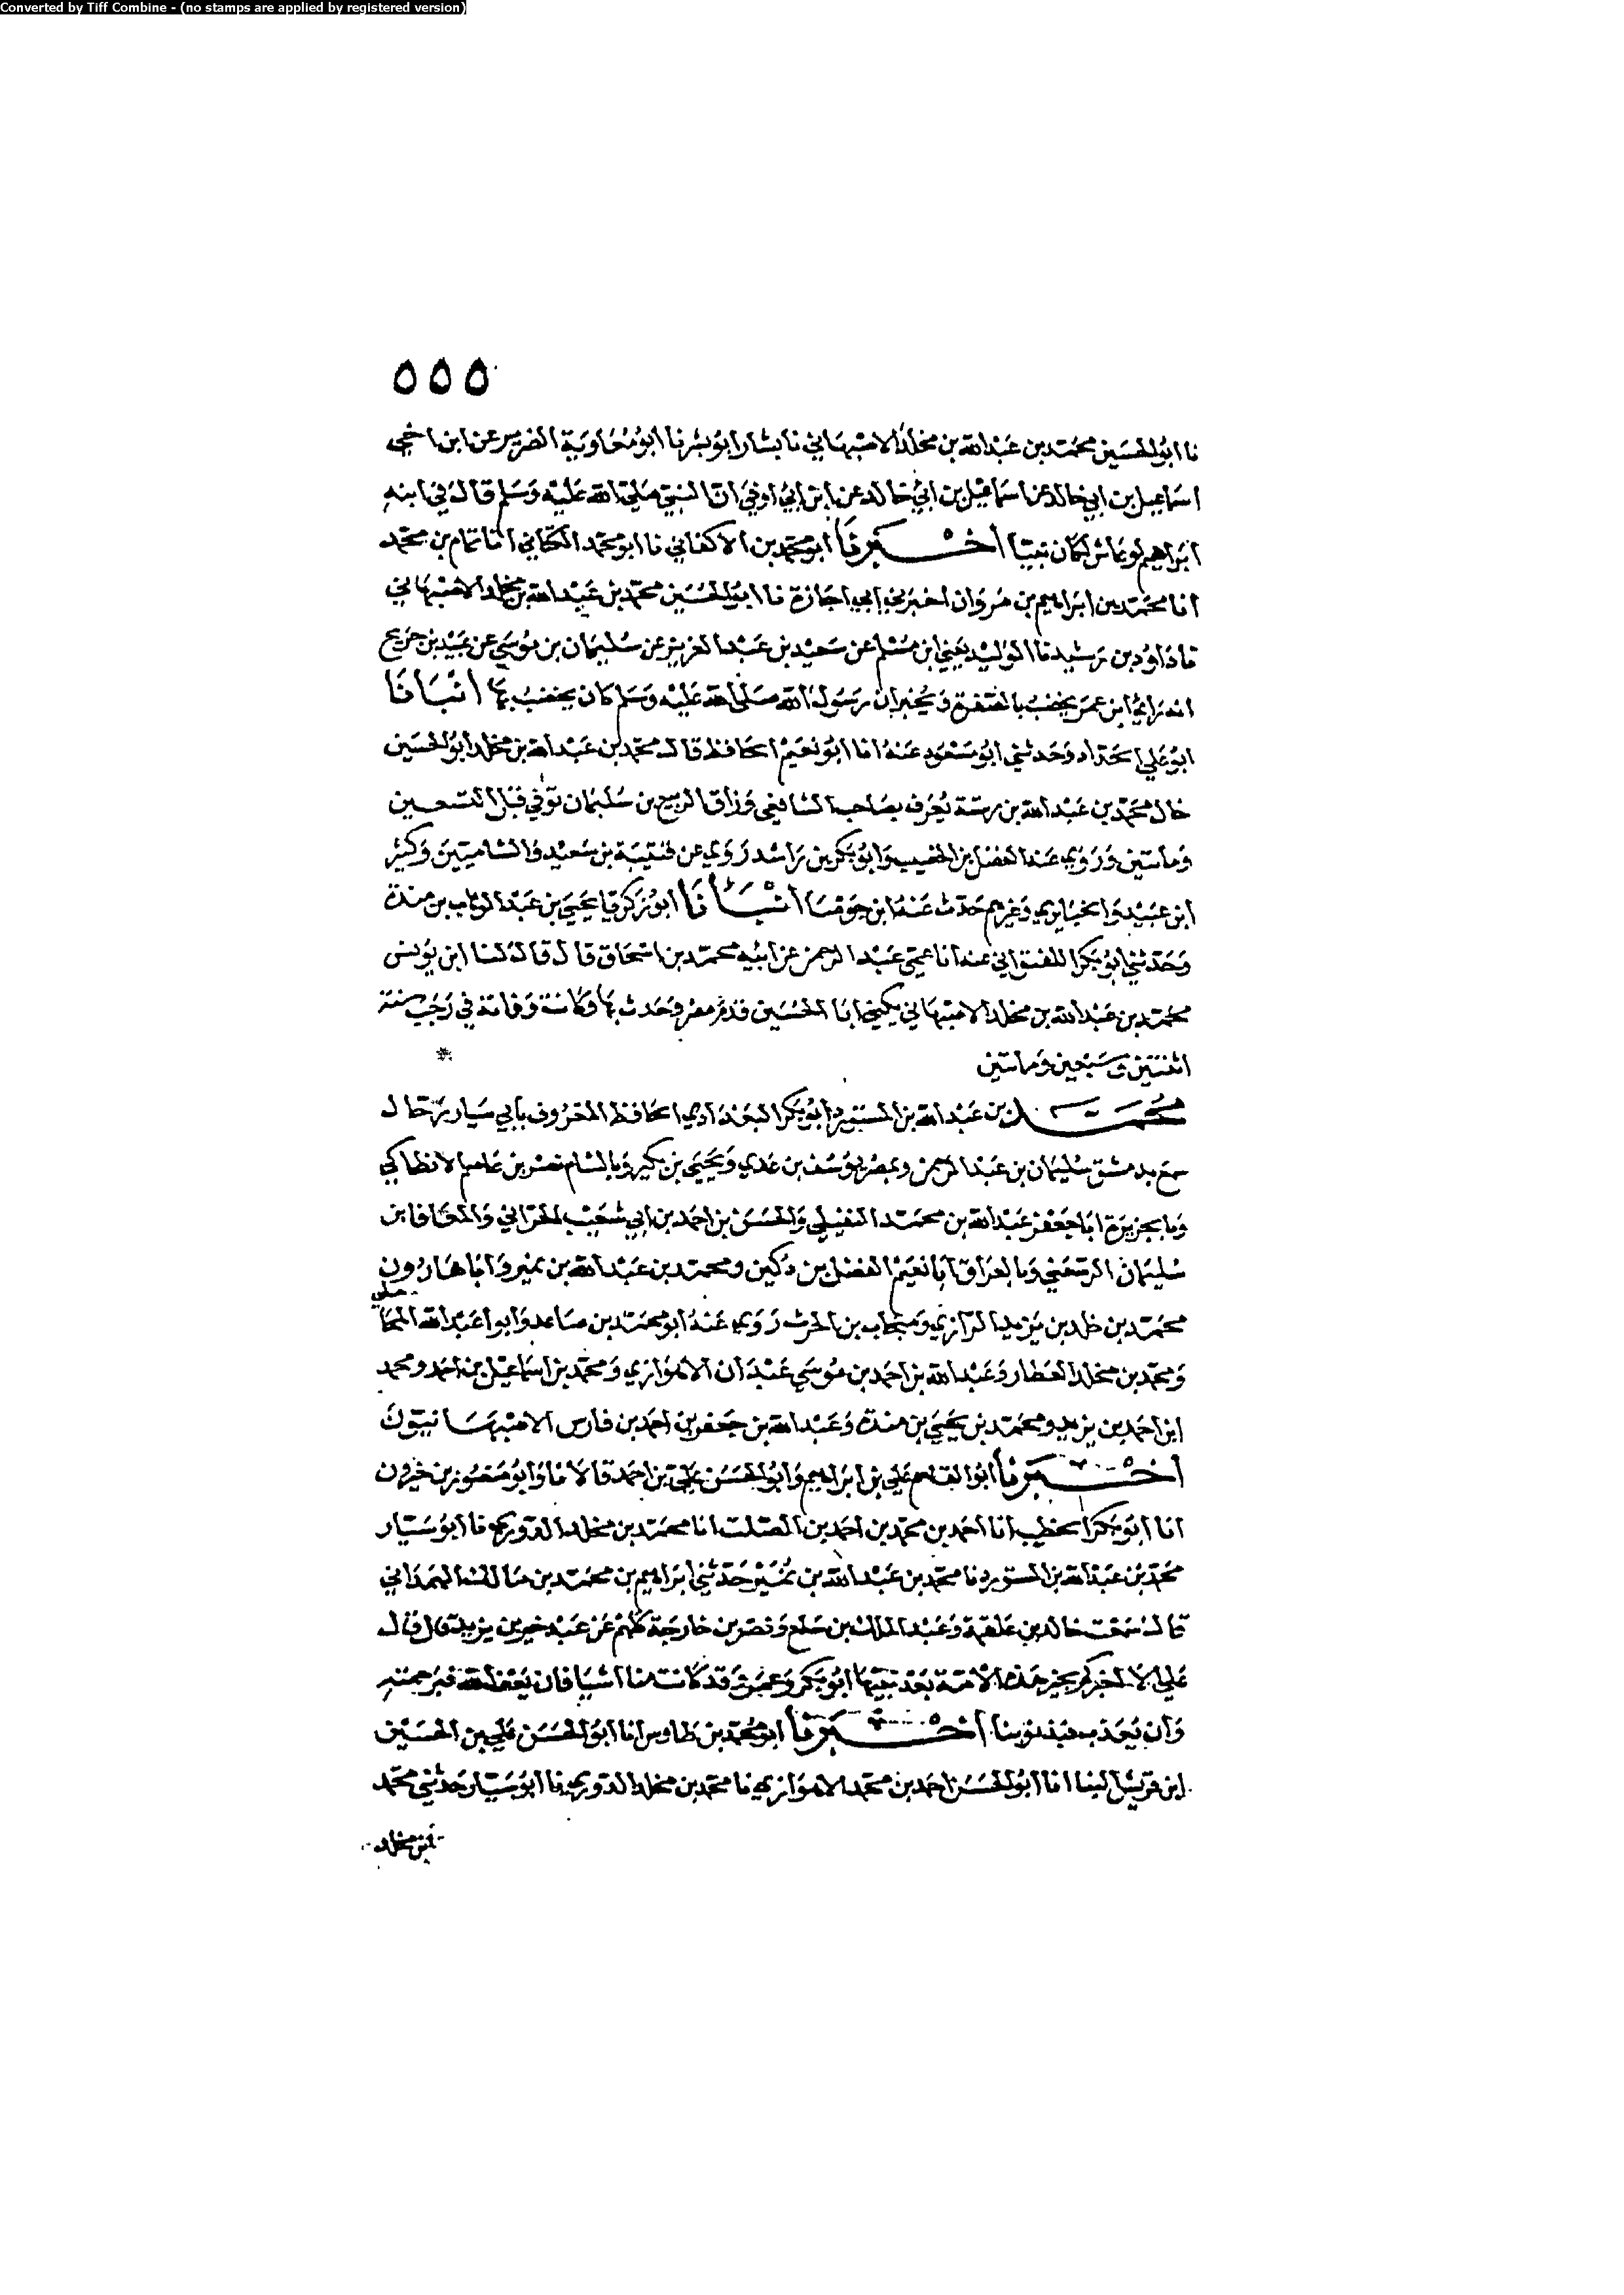 Converted by Tiff Combine - (no stamps are applied by registered version)
٥٥٥
نا ابو الحسين محمد بن عبد الله بن مخلد الاصبهاني نا بشار ابو بشر نا ابو معاوية الضرير عن ابن اخي
اسماعيل بن ابي خالد عن اسماعيل بن ابي خالد عن ابن ابي اوفى ان النبي صلى الله عليه وسلم قال في ابنه
ابراهيم لو عاش لكان نبيا اخبرنا ابو محمد بن الاكفاني نا ابو محمد الكتاني انا تمام بن محمد
انا محمد بن ابراهيم بن مروان اخبرني ابي اجازة نا ابو الحسين محمد بن عبد الله بن مخلد الاصبهاني
نا داود بن رشيد نا الوليد يعني ابن مسلم عن سعيد بن عبد العزيز عن سليمان بن موسى عن عبيد بن جريج
انه راى ابن عمر يخضب بالصفرة ويخبر ان رسول الله صلى الله عليه وسلم كان يخضب بها انبانا
ابو علي الحداد وحدثني ابو مسعود عنه انا ابو نعيم الحافظ قال محمد بن عبد الله بن مخلد ابو الحسين
خال محمد بن عبد الله بن رستة يعرف بصاحب الشافعي وراق الربيع بن سليمان توفي قبل التسعين
ومائتين وروى عنه الفضل بن الخصيب وابو بكر بن راشد روى عن قتيبة بن سعيد والشاميين وكثير
ابن عبيد والخبايري وغيرهم حدث عنه ابن جوصا انبانا ابو زكريا يحيى بن عبد الوهاب بن مندة
وحدثني ابو بكر اللفتواني عنه انا عمي عبد الرحمن عن ابيه محمد بن اسحاق قال قال لنا ابن يونس
محمد بن عبد الله بن مخلد الاصبهاني يكنى ابا الحسين قدم مصر وحدث بها وكانت وفاته في رجب سنة
اثنتين وسبعين ومائتين *
محمد بن عبد الله بن المستورد ابو بكر البغدادي الحافظ المعروف بابي سيار رحال
سمع بدمشق سليمان بن عبد الرحمن وبمصر يوسف بن عدي ويحيى بن بكير وبالشام نصر بن عاصم الانطاكي
وبالجزيرة ابا جعفر عبد الله بن محمد النفيلي والحسن بن احمد بن ابي شعيب الحراني والمعافا بن
سليمان الرسعني وبالعراق ابا نعيم الفضل بن دكين ومحمد بن عبد الله بن نمير وابا هارون
محمد بن خلد بن يزيد الرازي ومنجاب بن الحرث روى عنه ابو محمد بن صاعد وابوا عبد الله المحا
ملي
ومحمد بن مخلد العطار وعبد الله بن احمد بن موسى عبدان الاهوازي ومحمد بن اسماعيل بن احمد ومحمد
ابن احمد بن يزيد ومحمد بن يحيى بن مندة وعبد الله بن جعفر بن احمد بن فارس الاصبهانيون
اخبرنا ابو القاسم علي بن ابراهيم وابو الحسن علي بن احمد قالا نا وابو منصور بن خيرون
انا ابو بكر الخطيب انا احمد بن محمد بن احمد بن الصلت انا محمد بن مخلد الدوري نا ابو سيار
محمد بن عبد الله بن المستورد نا محمد بن عبد الله بن نمير حدثني ابراهيم بن محمد بن مالك الهمداني
قال سمعت خالد بن علقمة وعبد الملك بن سلع ونصر بن خارجة كلهم عن عبد خير بن يزيد قال قال
علي الا اخبركم بخير هذه الامة بعد نبيها ابو بكر وعمر وقد كانت منا اشيا فان يعف الله فبرحمته
وان يعذب فبذنوبنا اخبرنا ابو محمد بن طاوس انا ابو الحسن علي بن الحسين
ابن قريش البنا انا ابو الحسن احمد بن محمد الاهوازي نا محمد بن مخلد الدوري نا ابو سيار حدثني محمد
بن مخلد